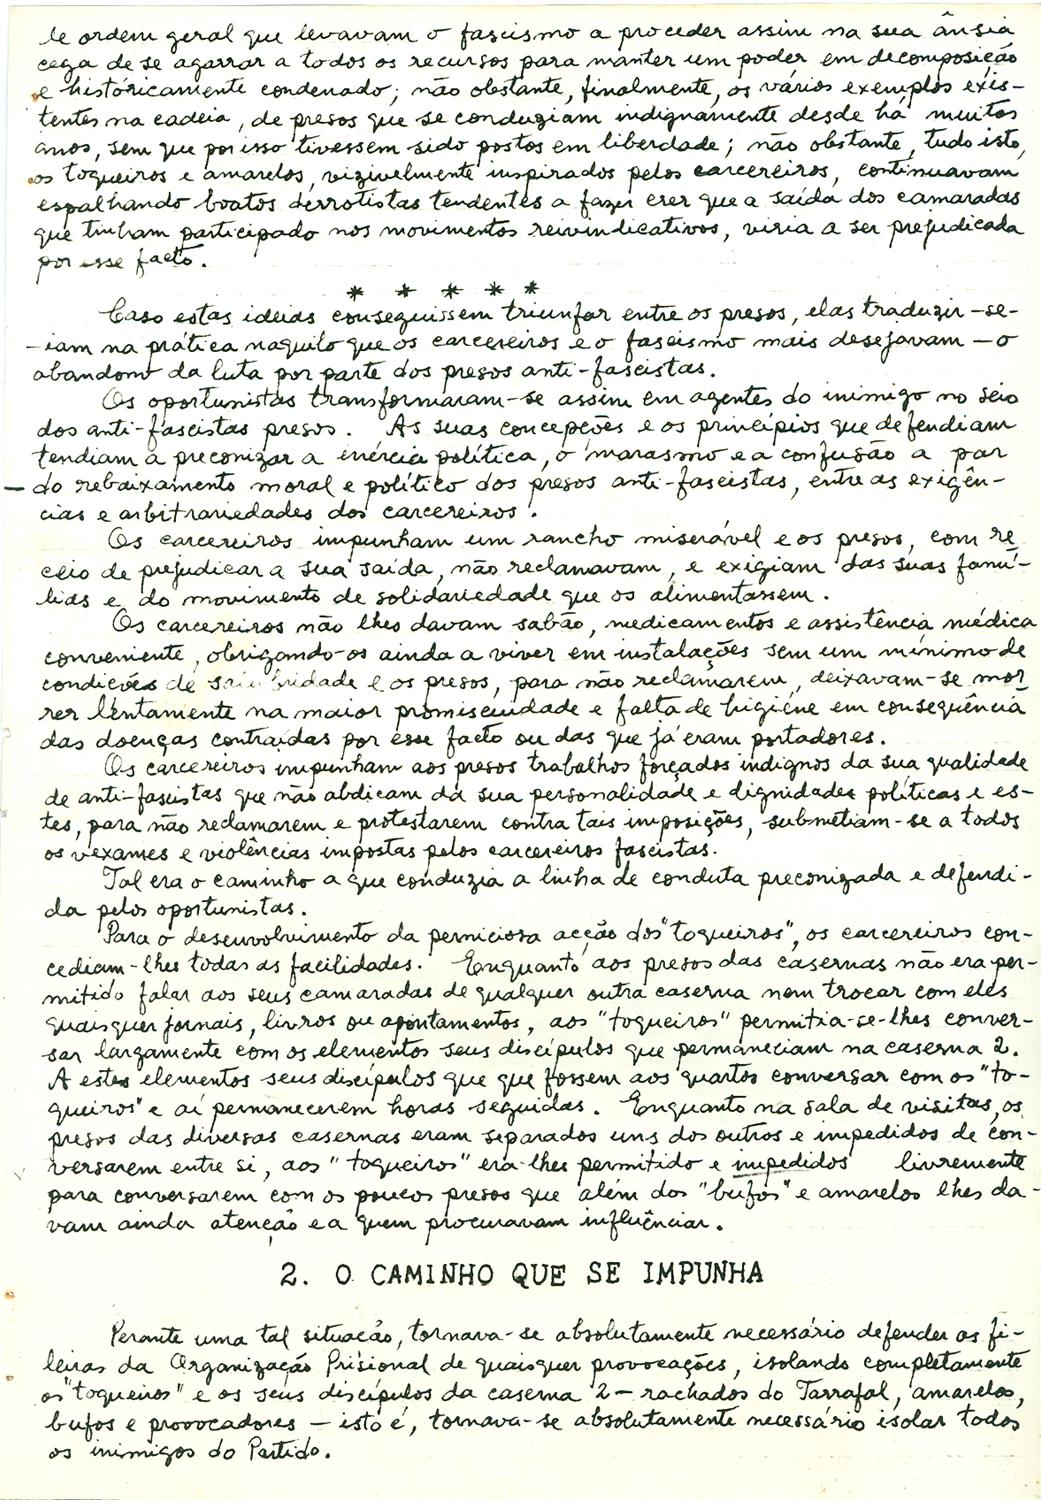 de ordem geral que levavam o fascismo a proceder assim na sua ânsia
cega de se agarrar a todos os recursos para manter um poder em decomposição
e históricamente condenado; não obstante, finalmente, os vários exemplos éxis-
tentes na cadeia, de presos que se conduziam indignamente desde há muitos
anos, sem que por isso tivessem sido postos em liberdade; não obstante, tudo isto,
os toqueiros e amarelos, vizivelmente inspirados pelos carcereiros, continuavam
espalhando boatos derrotistas tendentes a fazer crer que a saída dos camaradas
que tinham participado nos movimentos reivindicativos, viria a ser prejudicada
por esse facto.
* * * * *
Caso estas ideias conseguissem triunfar entre os presos, elas traduzir-se-
-iam na prática naquilo que os carcereiros e o fascismo mais desejavam — o
abandono da luta por parte dos presos anti-fascistas.
Os oportunistas transformaram-se assim em agentes do inimigo no seio
dos anti-fascistas presos. As suas concepções e os princípios que defendiam
tendiam a preconizar a inércia política, o marasmo e a confusão a par
do rebaixamento moral e político dos presos anti-fascistas, entre as exigên-
cias e arbitrariedades dos carcereiros.
Os carcereiros impunham um rancho miserável e os presos, com re
ceio de prejudicar a sua saída, não reclamavam, e exigiam das suas famí-
lias e do movimento de solidariedade que os alimentassem.
Os carcereiros não lhes davam sabão, medicamentos e assistência médica
conveniente, obrigando-os ainda a viver em instalações sem um mínimo de
condições de salubridade e os presos, para não reclamarem, deixavam-se mor
rer lentamente na maior promiscuidade e falta de higiene em consequência
das doenças contraídas por esse facto ou das que já eram portadores.
Os carcereiros impunham aos presos trabalhos forçados indignos da sua qualidade
de anti-fascistas que não abdicam da sua personalidade e dignidades políticas e es-
tes, para não reclamarem e protestarem contra tais imposições, submetiam-se a todos
os vexames e violências impostas pelos carcereiros fascistas.
Tal era o caminho a que conduzia a linha de conduta preconizada e defendi-
da pelos oportunistas.
Para o desenvolvimento da perniciosa acção dos "toqueiros", os carcereiros con-
cediam-lhes todas as facilidades. Enquanto aos presos das casernas não era per-
mitido falar aos seus camaradas de qualquer outra caserna nem trocar com eles
quaisquer jornais, livros ou apontamentos, aos "toqueiros" permitia-se-lhes conver-
sar largamente com os elementos seus discípulos que permaneciam na caserna 2.
A estes elementos seus discípulos que que fossem aos quartos conversar com os "to-
queiros" e aí permanecerem horas seguidas. Enquanto na sala de visitas, os
presos das diversas casernas eram separados uns dos outros e impedidos de con-
versarem entre si, aos "toqueiros" era-lhes permitido e impedidos livremente
para conversarem com os poucos presos que além dos "bufos" e amarelos lhes da-
vam ainda atenção e a quem procuravam influênciar.
2. O CAMINHO QUE SE IMPUNHA
Perante uma tal situação, tornava-se absolutamente necessário defender as fi-
leiras da Organização Prisional de quaisquer provocações, isolando completamente
os "toqueiros" e os seus discípulos da caserna 2 — rachados do Tarrafal, amarelos,
bufos e provocadores — isto é, tornava-se absolutamente necessário isolar todos
os inimigos do Partido.